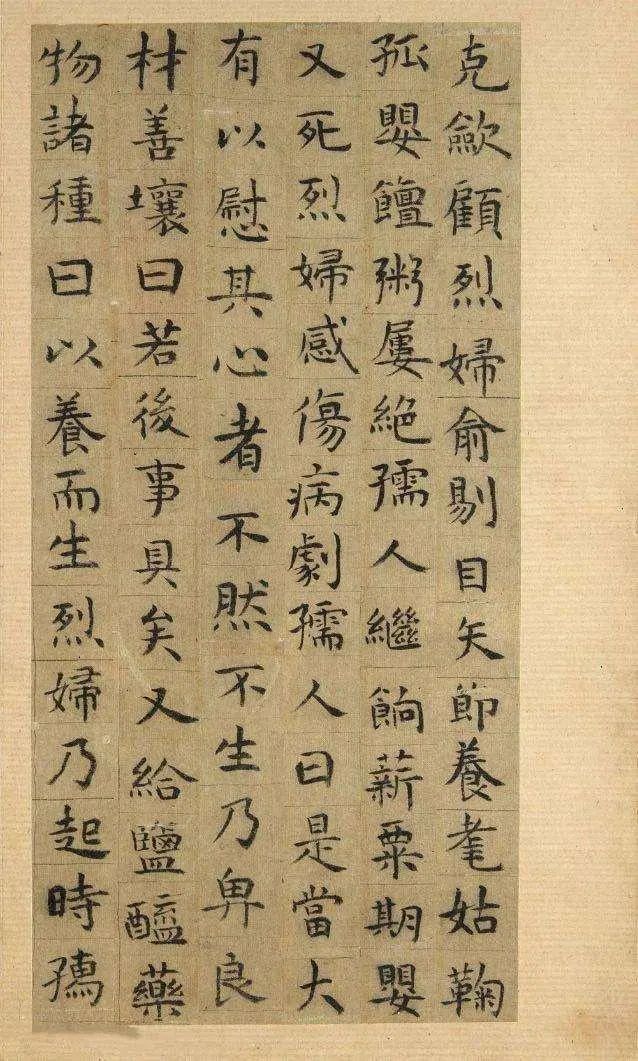 克歛顧烈婦俞剔目矢節養耄姑鞠
孤嬰饘粥屢絕孺人繼餉薪粟期嬰
又死烈婦感傷病劇孺人曰是當大
有以慰其心者不然不生乃畀良
材善壤曰若後事具矣又給鹽醯藥
物諸種曰以養而生烈婦乃起時孺